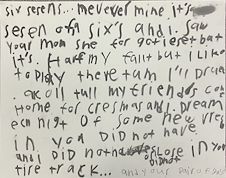 six sevens... me never mine it's
seven of six's and i saw
your mom she forgot ies et but
it's. Half my fallt but I like
to play there tam I'll
call tell my friends co
Home for cresmas and. I. Dream
ech night Of some new
in you Did not have
and i DiD not close in you
Did not
tire track... and your pair of